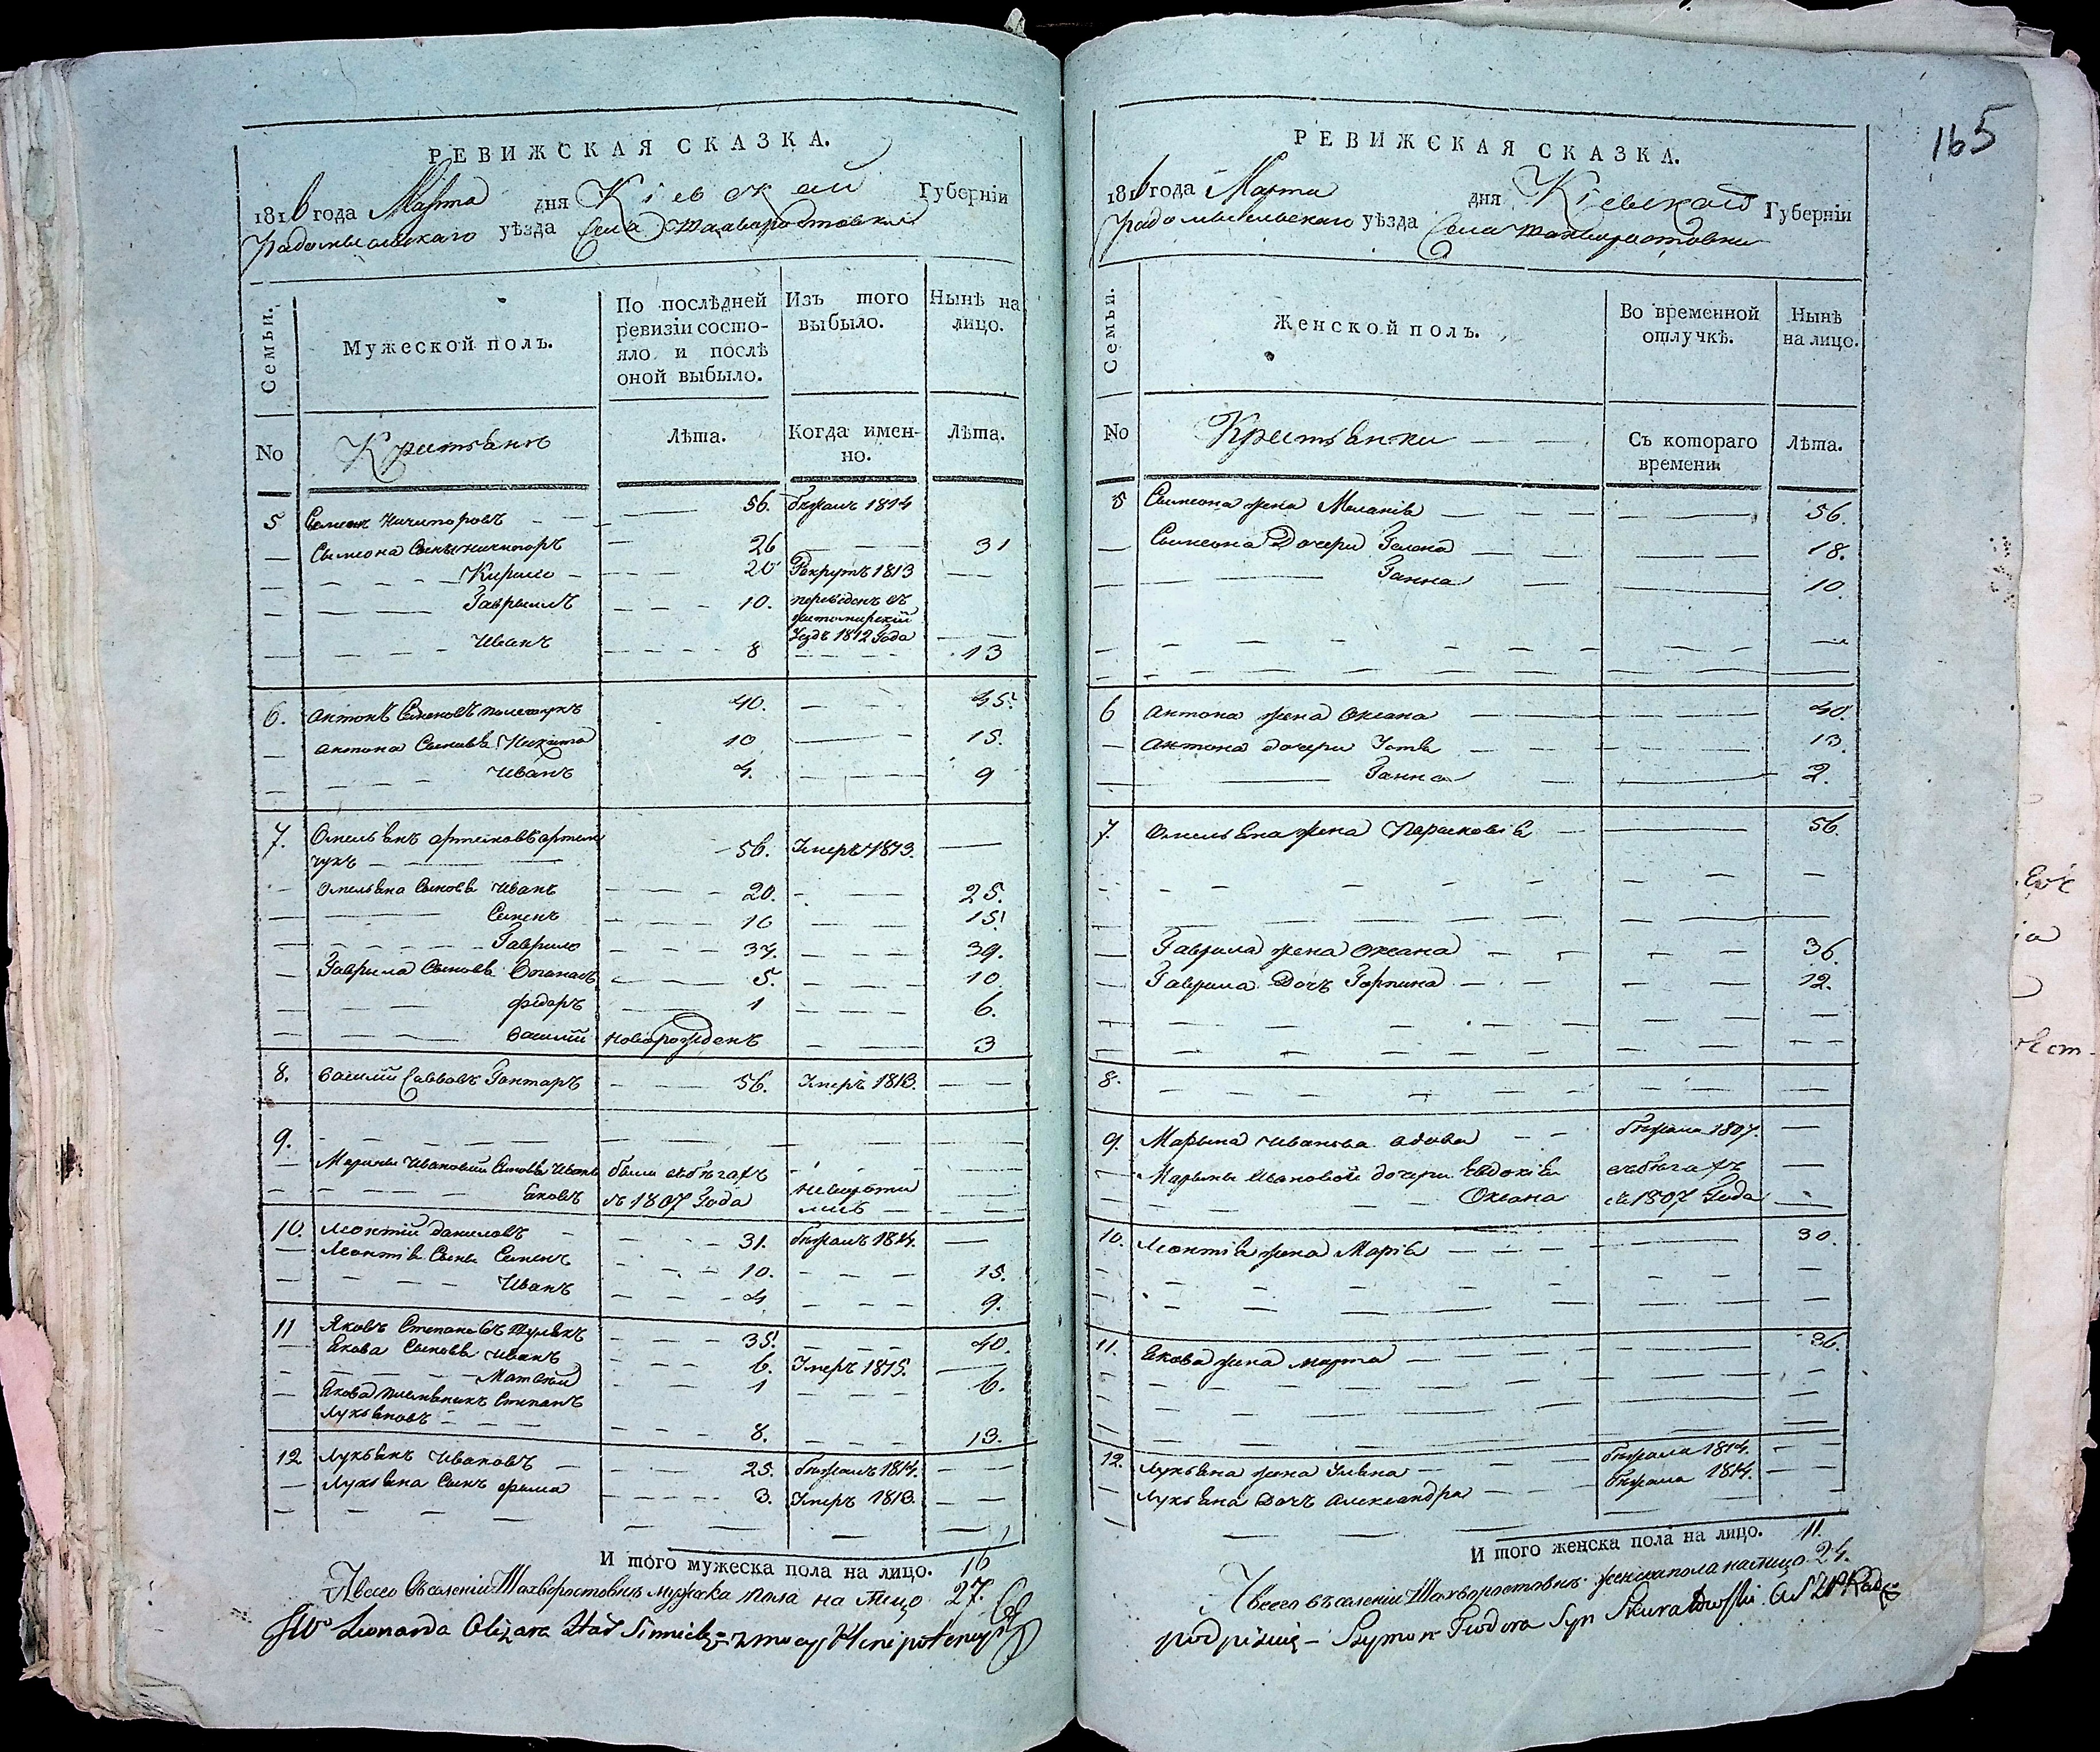 165
РЕВИЖСКАЯ СКАЗКА.
1816 года Марта дня Кіевской Губерніи
Радомысльскаго уѣзда Села Шахворостовки
Семьи.
Мужеской полъ.
По послѣдней ревизіи состо-
яло и послѣ
оной выбыло.
Изъ того
выбыло.
Нынѣ на
лицо.
No
Крестьянъ
Лѣта.
Когда имен-
но.
Лѣта.
5 Семенъ Ничипоровъ 56. бѣжалъ 1814
Симеона Сынъ Ничипоръ 26 31
Кирило 20 Рекрутъ 1813
Гаврыилъ 10. переведенъ въ
житомирскій
Уездъ 1812 Года
Иванъ 8 13
6. Антонъ Семеновъ Полещукъ 40. 45.
Антона Сыновья Никита 10 15.
Иванъ 4. 9
7. Омельянъ Артемовъ Артем
чукъ 56. Умеръ 1813.
Омельяна Сыновья Иванъ 20. 25.
Семенъ 10 15.
Гаврило 34. 39.
Гаврила Сыновья 5. 10
Федоръ 1 6.
Василій новорожденъ 3
8. Василій Саввовъ Гонтаръ 56. Умеръ 1813.
9.
Марины Ивановой Сыновья Иванъ были въ бѣгахъ
Яковъ съ 1807 Года невороти
лись
10. Леонтій Даниловъ 31. бѣжалъ 1814.
Леонтія Сыны Семенъ 10. 15.
Иванъ 4 9.
11 Яковъ Степановъ 35. 40.
Якова Сыновья Иванъ 6. Умеръ 1815.
Матвѣй 1 6.
Якова племянникъ Степанъ
Лукьяновъ 8. 13.
12 Лукьянъ Ивановъ 25. бѣжалъ 1814.
Лукьяна Сынъ Фома 3. Умеръ 1813.
И того мужеска пола на лицо. 16
А всего въ селеніи Шахворостовкѣ мужеска пола на лицо 27.
JWo Leonarda Olizara Stad z mocy Plenipotencyi
РЕВИЖСКАЯ СКАЗКА.
1816 года Марта дня Кіевской Губерніи
Радомысльскаго уѣзда Села Шахворостовки
Семьи.
Женской полъ.
Во временной
отлучкѣ.
Нынѣ
на лицо.
No
Крестьянки
Съ котораго
времени.
Лѣта.
5 Симеона жена Меланія 56.
Симеона Дочери Гелена 18.
Ганна 10.
6 Антона жена Оксана 40.
Антона дочери Устя 13.
Ганна 2.
7. Омельяна жена Парасковія 56.
Гаврила жена Оксана 36.
Гаврила Дочъ Горпина 12.
8.
9. Марына Иванова вдова бѣжала 1807.
Марыны Ивановой дочери Евдокія въ бѣгахъ
Оксана съ 1807 Года
10. Леонтія жена Марія 30.
11. Якова жена Марта 36.
12. Лукьяна жена Уляна бѣжала 1814.
Лукьяна Дочъ Александра бѣжала 1814.
И того женска пола на лицо. 11.
А всего въ селеніи Шахворостовкѣ женска пола на лицо 24.
podpisuię - Szymon Teodora Syn Skuratowski